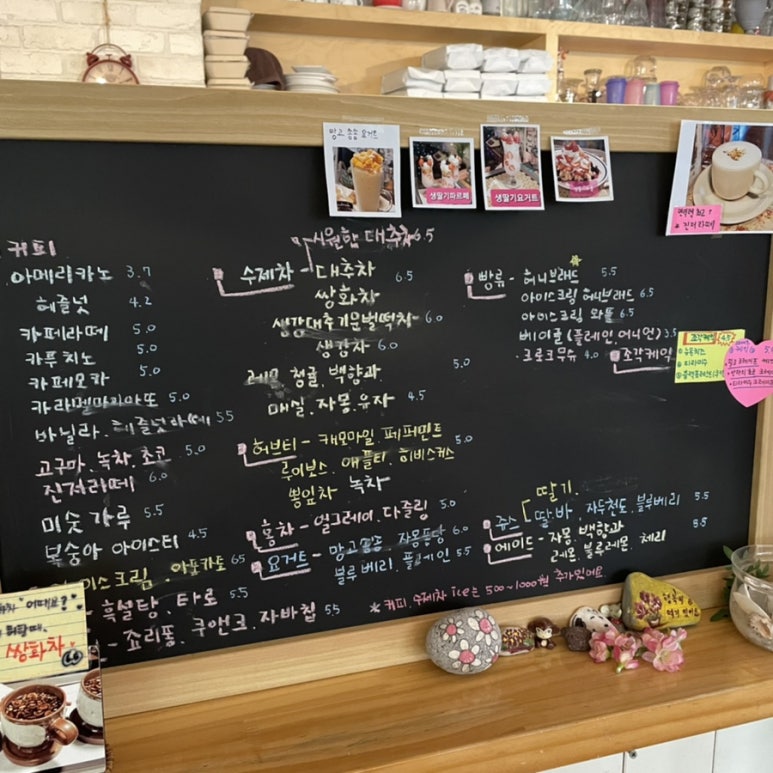 망고 송송 요거트
생딸기파르페
생딸기요거트
진저라떼
커피
아메리카노 3.7
헤즐넛 4.2
카페라떼 5.0
카푸치노 5.0
카페모카 5.0
카라멜마끼아또 5.0
바닐라. 헤즐넛라떼 5.5
고구마. 녹차. 초코 5.0
진저라떼 6.0
미숫가루 5.5
복숭아 아이스티 4.5
아이스크림. 아포카토 6.5
흑설탕. 타로 5.5
죠리퐁. 쿠앤크. 자바칩 5.5
시원한 대추차 6.5
수제차 - 대추차 6.5
쌍화차
생강대추기운벌떡차 6.0
생강차 6.0
레몬. 청귤. 백향과 5.0
매실. 자몽. 유자 4.5
허브티 - 캐모마일. 페퍼민트 5.0
루이보스. 애플티. 히비스커스
뽕잎차. 녹차
홍차 - 얼그레이. 다즐링 5.0
요거트 - 망고송송 자몽퐁당 6.0
블루베리. 플레인 5.5
*커피. 수제차 ice는 500~1000원 추가있어요
빵류 - 허니브래드 5.5
아이스크림 허니브래드 6.5
아이스크림 와플 6.5
베이글(플레인, 어니언) 3.5
크로크무슈 4.0 조각케익
조각케익
티라미수
쥬스 딸기.
딸.바. 자두천도. 블루베리 5.5
에이드 - 자몽. 백향과 5.5
레몬. 블루레몬. 체리
어때요?
쌍화차